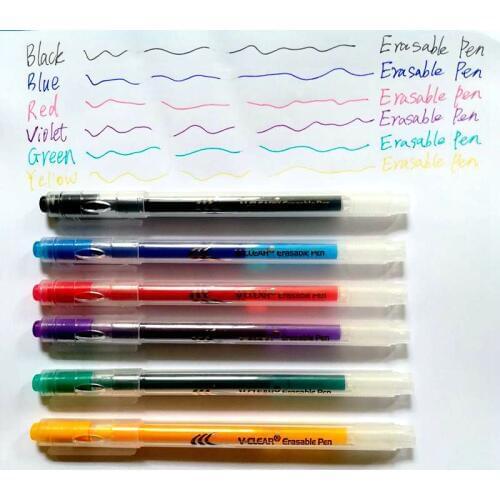 Black Erasable Pen
Blue Erasable Pen
Red Erasable Pen
Violet Erasable Pen
Green Erasable Pen
Yellow Erasable Pen
V-CLEAR® Erasable Pen
V-CLEAR® Erasable Pen
V-CLEAR® Erasable Pen
V-CLEAR® Erasable Pen
V-CLEAR® Erasable Pen
V-CLEAR® Erasable Pen